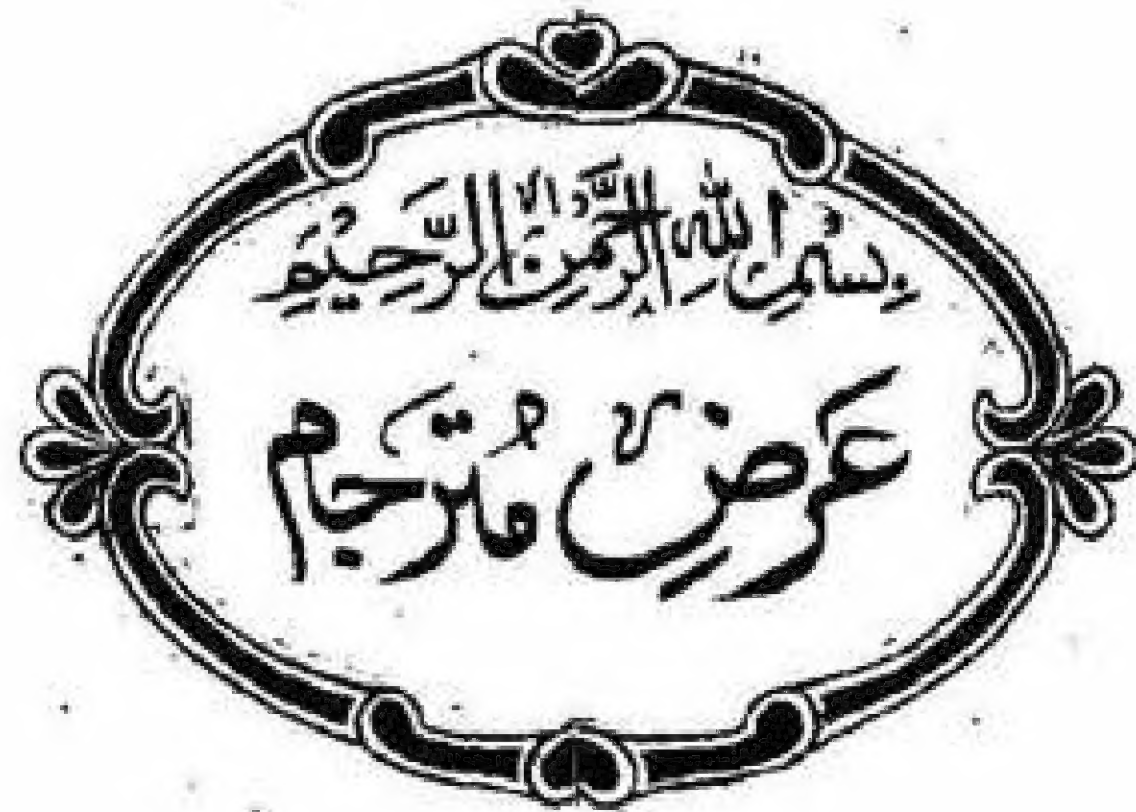 بِسْمِ اللهِ الرَّحْمٰنِ الرَّحِيْمِ
عَرضِ مُترجام